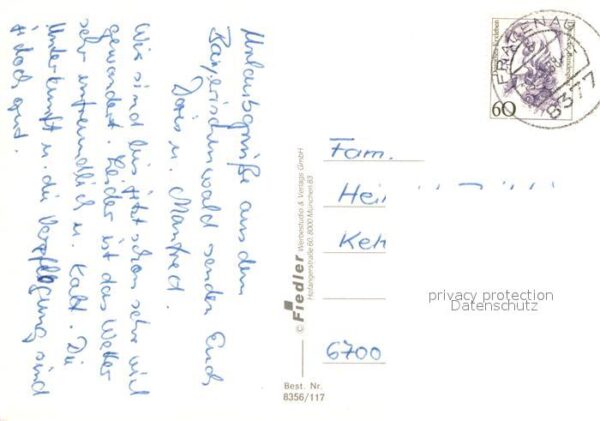 Urlaubsgrüße aus dem
Bayerischenwald senden Euch
Doris u. Manfred.
Wir sind bis jetzt schon sehr viel
gewandert. Leider ist das Wetter
sehr unfreundlich u. Kalt. Die
Unterkunft u. die Verpflegung sind
jedoch gut.
© Fiedler Werbestudio & Verlags GmbH
Hofangerstraße 60, 8000 München 83
Best. Nr.
8356/117
60
FRAUENAU
8377
Fam.
Hei
Keh
6700
privacy protection
Datenschutz